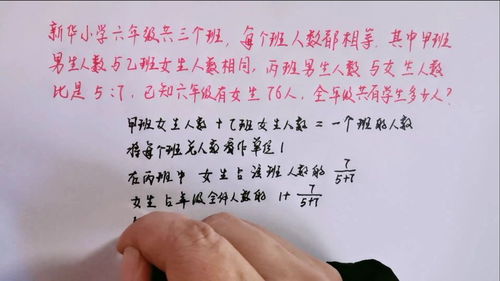 新华小学六年级共三个班，每个班人数都相等.其中甲班
男生人数与乙班女生人数相同，丙班男生人数与女生人数
比是5:7，已知六年级有女生76人，全年级共有学生多少人?
甲班女生人数+乙班女生人数=一个班的人数
将每个班总人数看作单位1
在丙班中 女生占该班人数的 7/(5+7)
女生占年级全体人数的 1+ 7/(5+7)